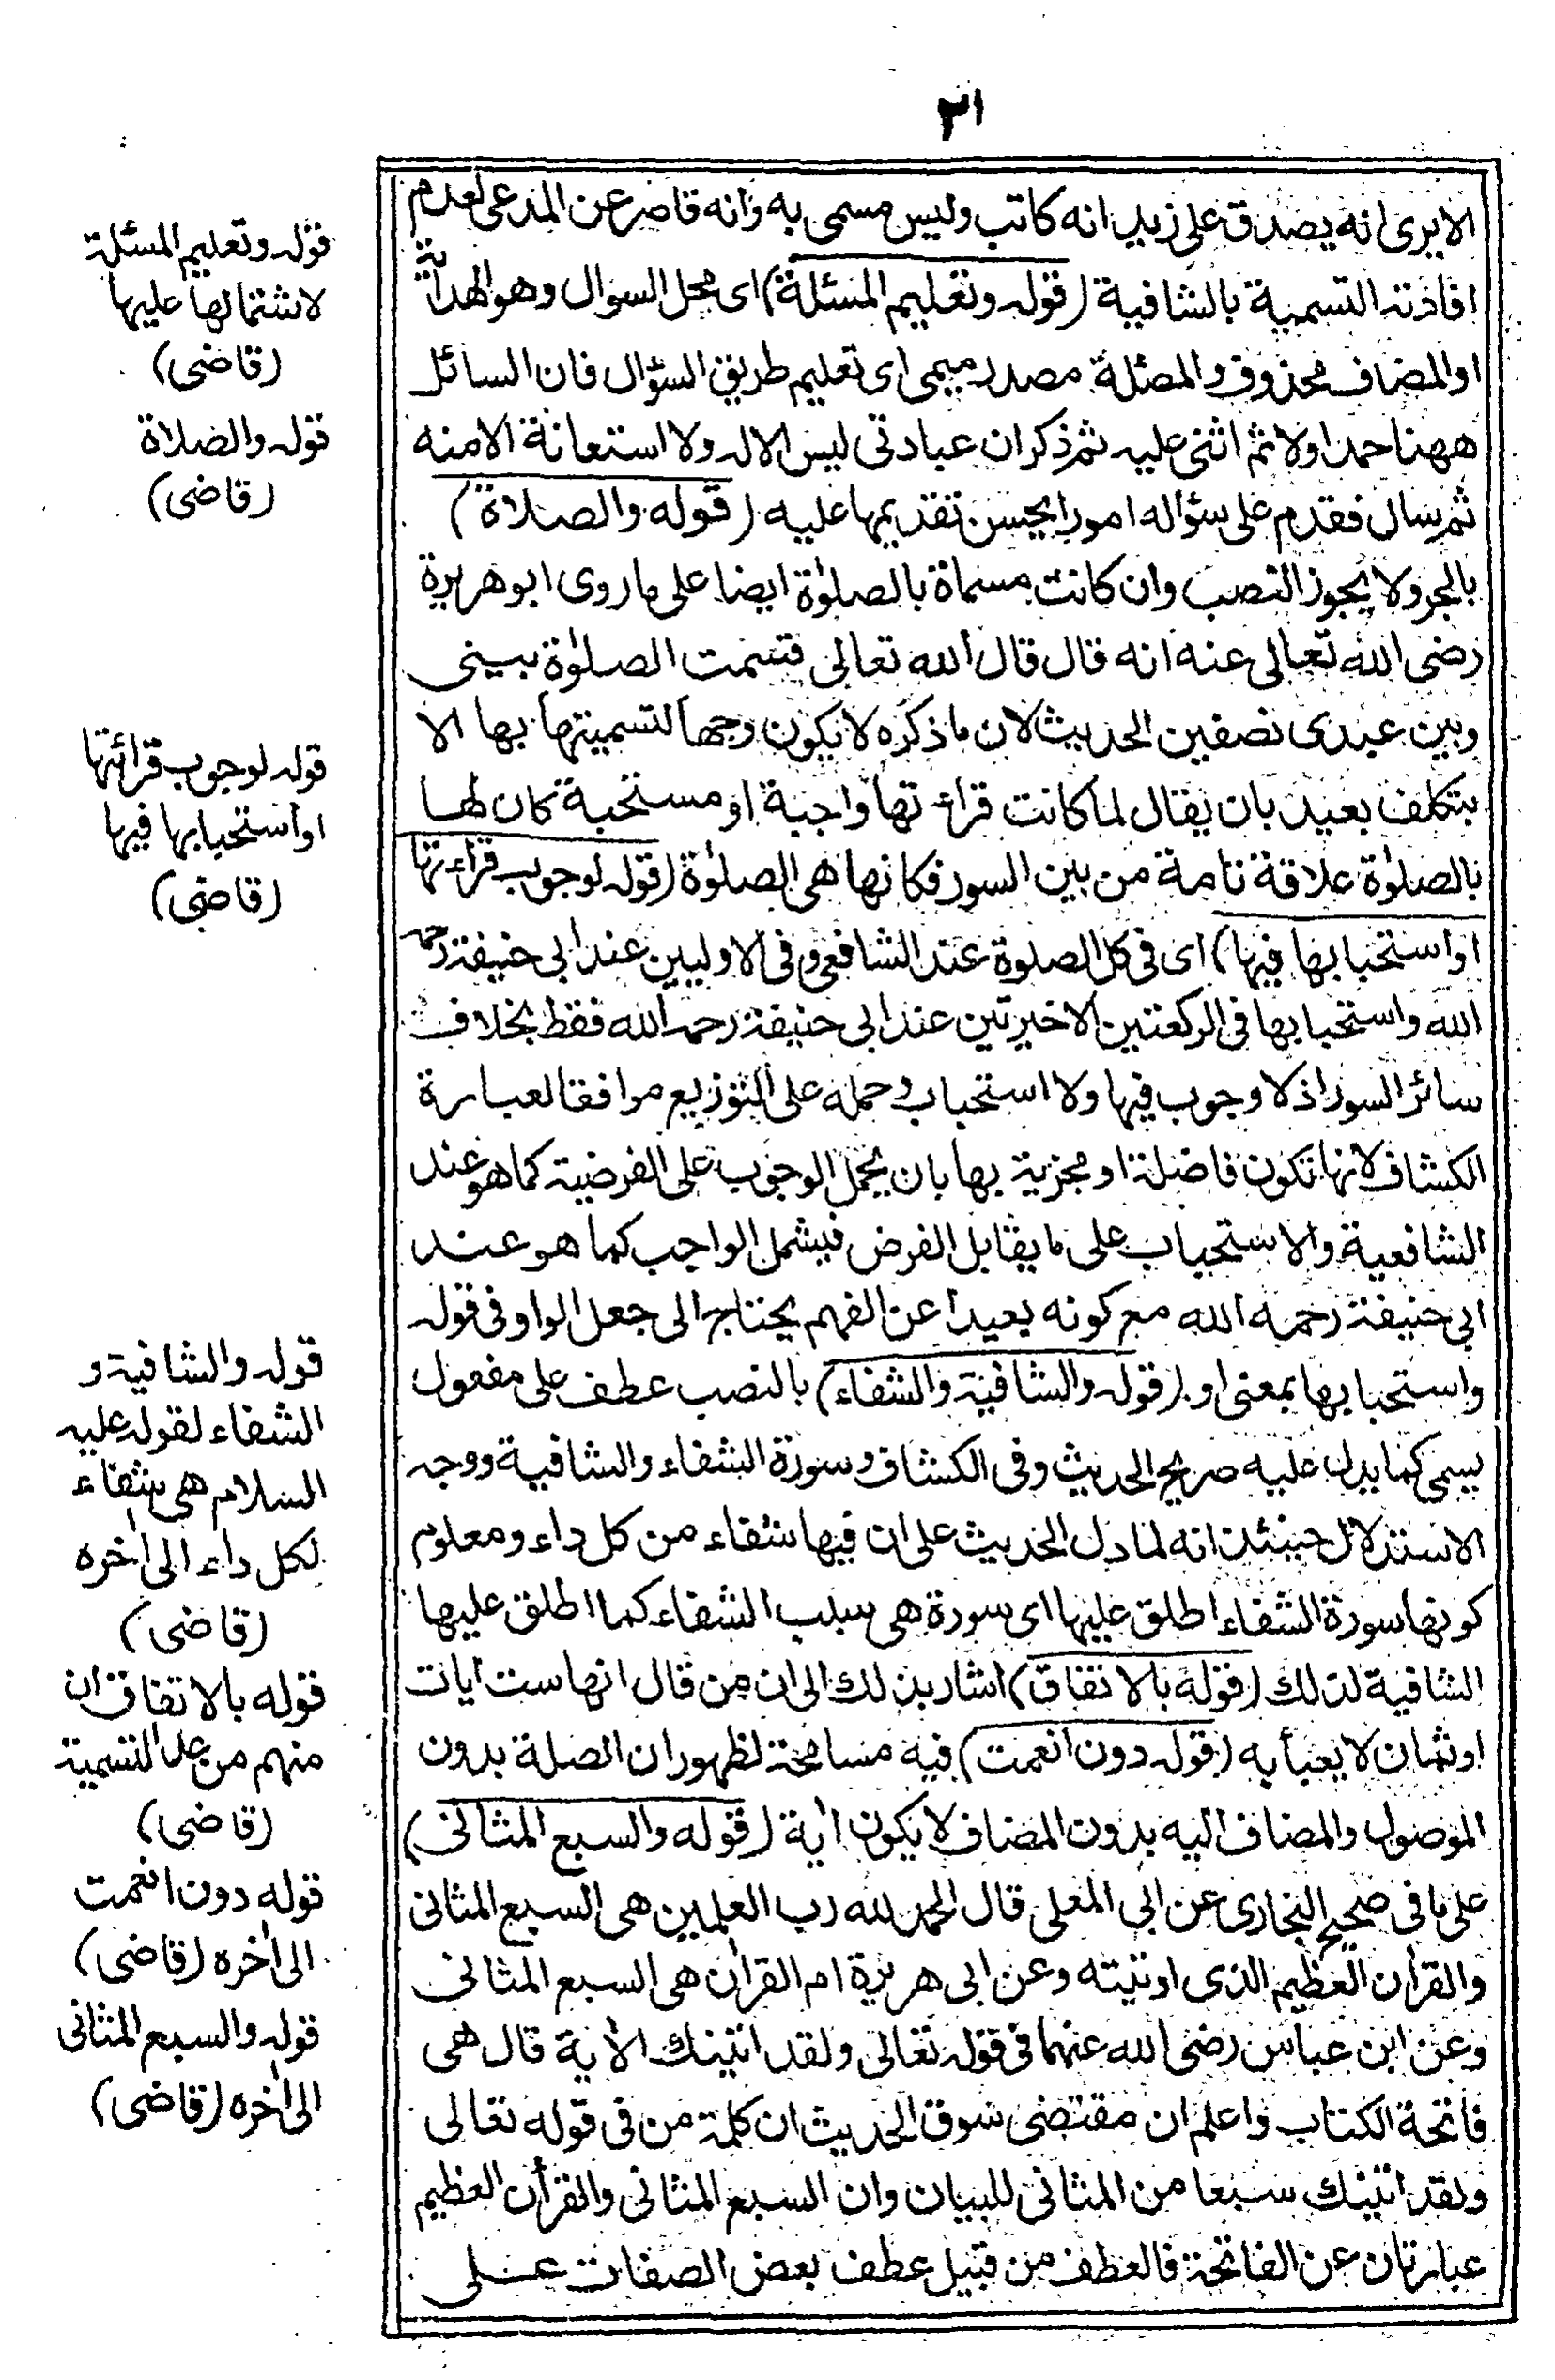 ٢١
الا يرى انه يصدق على زيد انه كاتب وليس مسمى به وانه قاصر عن المدعى لعدم
افادته التسمية بالشافية (قوله وتعليم المسئلة) اى محل السوال وهو الهداية
او المضاف محذوف والمسئلة مصدر ميمى اى تعليم طريق السؤال فان السائل
ههنا حمد اولا ثم اثنى عليه ثم ذكر ان عبادتى ليس الا له ولا استعانة الا منه
ثم سال فقدم على سؤاله امورا يحسن تقديمها عليه (قوله والصلاة)
بالجر ولا يجوز النصب وان كانت مسماة بالصلوٰة ايضا على ما روى ابو هريرة
رضى الله تعالى عنه انه قال قال الله تعالى قسمت الصلوٰة بينى
وبين عبدى نصفين الحديث لان ما ذكره لا يكون وجها لتسميتها بها الا
بتكلف بعيد بان يقال لما كانت قراءتها واجبة او مستحبة كان لها
بالصلوٰة علاقة تامة من بين السور فكانها هى الصلوٰة (قوله لوجوب قراءتها
او استحبابها فيها) اى فى كل الصلوة عند الشافعى وفى الاوليين عند ابى حنيفة رحمه
الله واستحبابها فى الركعتين الاخيرتين عند ابى حنيفة رحمه الله فقط بخلاف
سائر السور اذ لا وجوب فيها ولا استحباب وحمله على التوزيع موافقا لعبارة
الكشاف لانها تكون فاضلة او مجزية بها بان يحمل الوجوب على الفرضية كما هو عند
الشافعية والاستحباب على ما يقابل الفرض فيشمل الواجب كما هو عند
ابى حنيفة رحمه الله مع كونه بعيدا عن الفهم يحتاج الى جعل الواو فى قوله
واستحبابها بمعنى او (قوله والشافية والشفاء) بالنصب عطف على مفعول
يسمى كما يدل عليه صريح الحديث وفى الكشاف وسورة الشفاء والشافية ووجه
الاستدلال حينئذ انه لما دل الحديث على ان فيها شفاء من كل داء ومعلوم
كونها سورة الشفاء اطلق عليها اى سورة هى سبب الشفاء كما اطلق عليها
الشافية لذلك (قوله بالاتفاق) اشار بذلك الى ان من قال انها ست ايات
او ثمان لا يعبأ به (قوله دون انعمت) فيه مسامحة لظهور ان الصلة بدون
الموصول والمضاف اليه بدون المضاف لا يكون اٰية (قوله والسبع المثانى)
على ما فى صحيح البخارى عن ابى المعلى قال الحمد لله رب العلمين هى السبع المثانى
والقراٰن العظيم الذى اوتيته وعن ابى هريرة ام القراٰن هى السبع المثانى
وعن ابن عباس رضى الله عنهما فى قوله تعالى ولقد اتينك الاٰية قال هى
فاتحة الكتاب واعلم ان مقتضى سوق الحديث ان كلمة من فى قوله تعالى
ولقد اتينك سبعا من المثانى للبيان وان السبع المثانى والقراٰن العظيم
عبارتان عن الفاتحة فالعطف من قبيل عطف بعض الصفات على
قوله وتعليم المسئلة
لاشتمالها عليها
(قاضى)
قوله والصلاة
(قاضى)
قوله لوجوب قرائتها
او استحبابها فيها
(قاضى)
قوله والشافية و
الشفاء لقوله عليه
السلام هى شفاء
لكل داء الى اٰخره
(قاضى)
قوله بالاتفاق ان
منهم من عد التسمية
(قاضى)
قوله دون انعمت
الى اٰخره (قاضى)
قوله والسبع المثانى
الى اٰخره (قاضى)